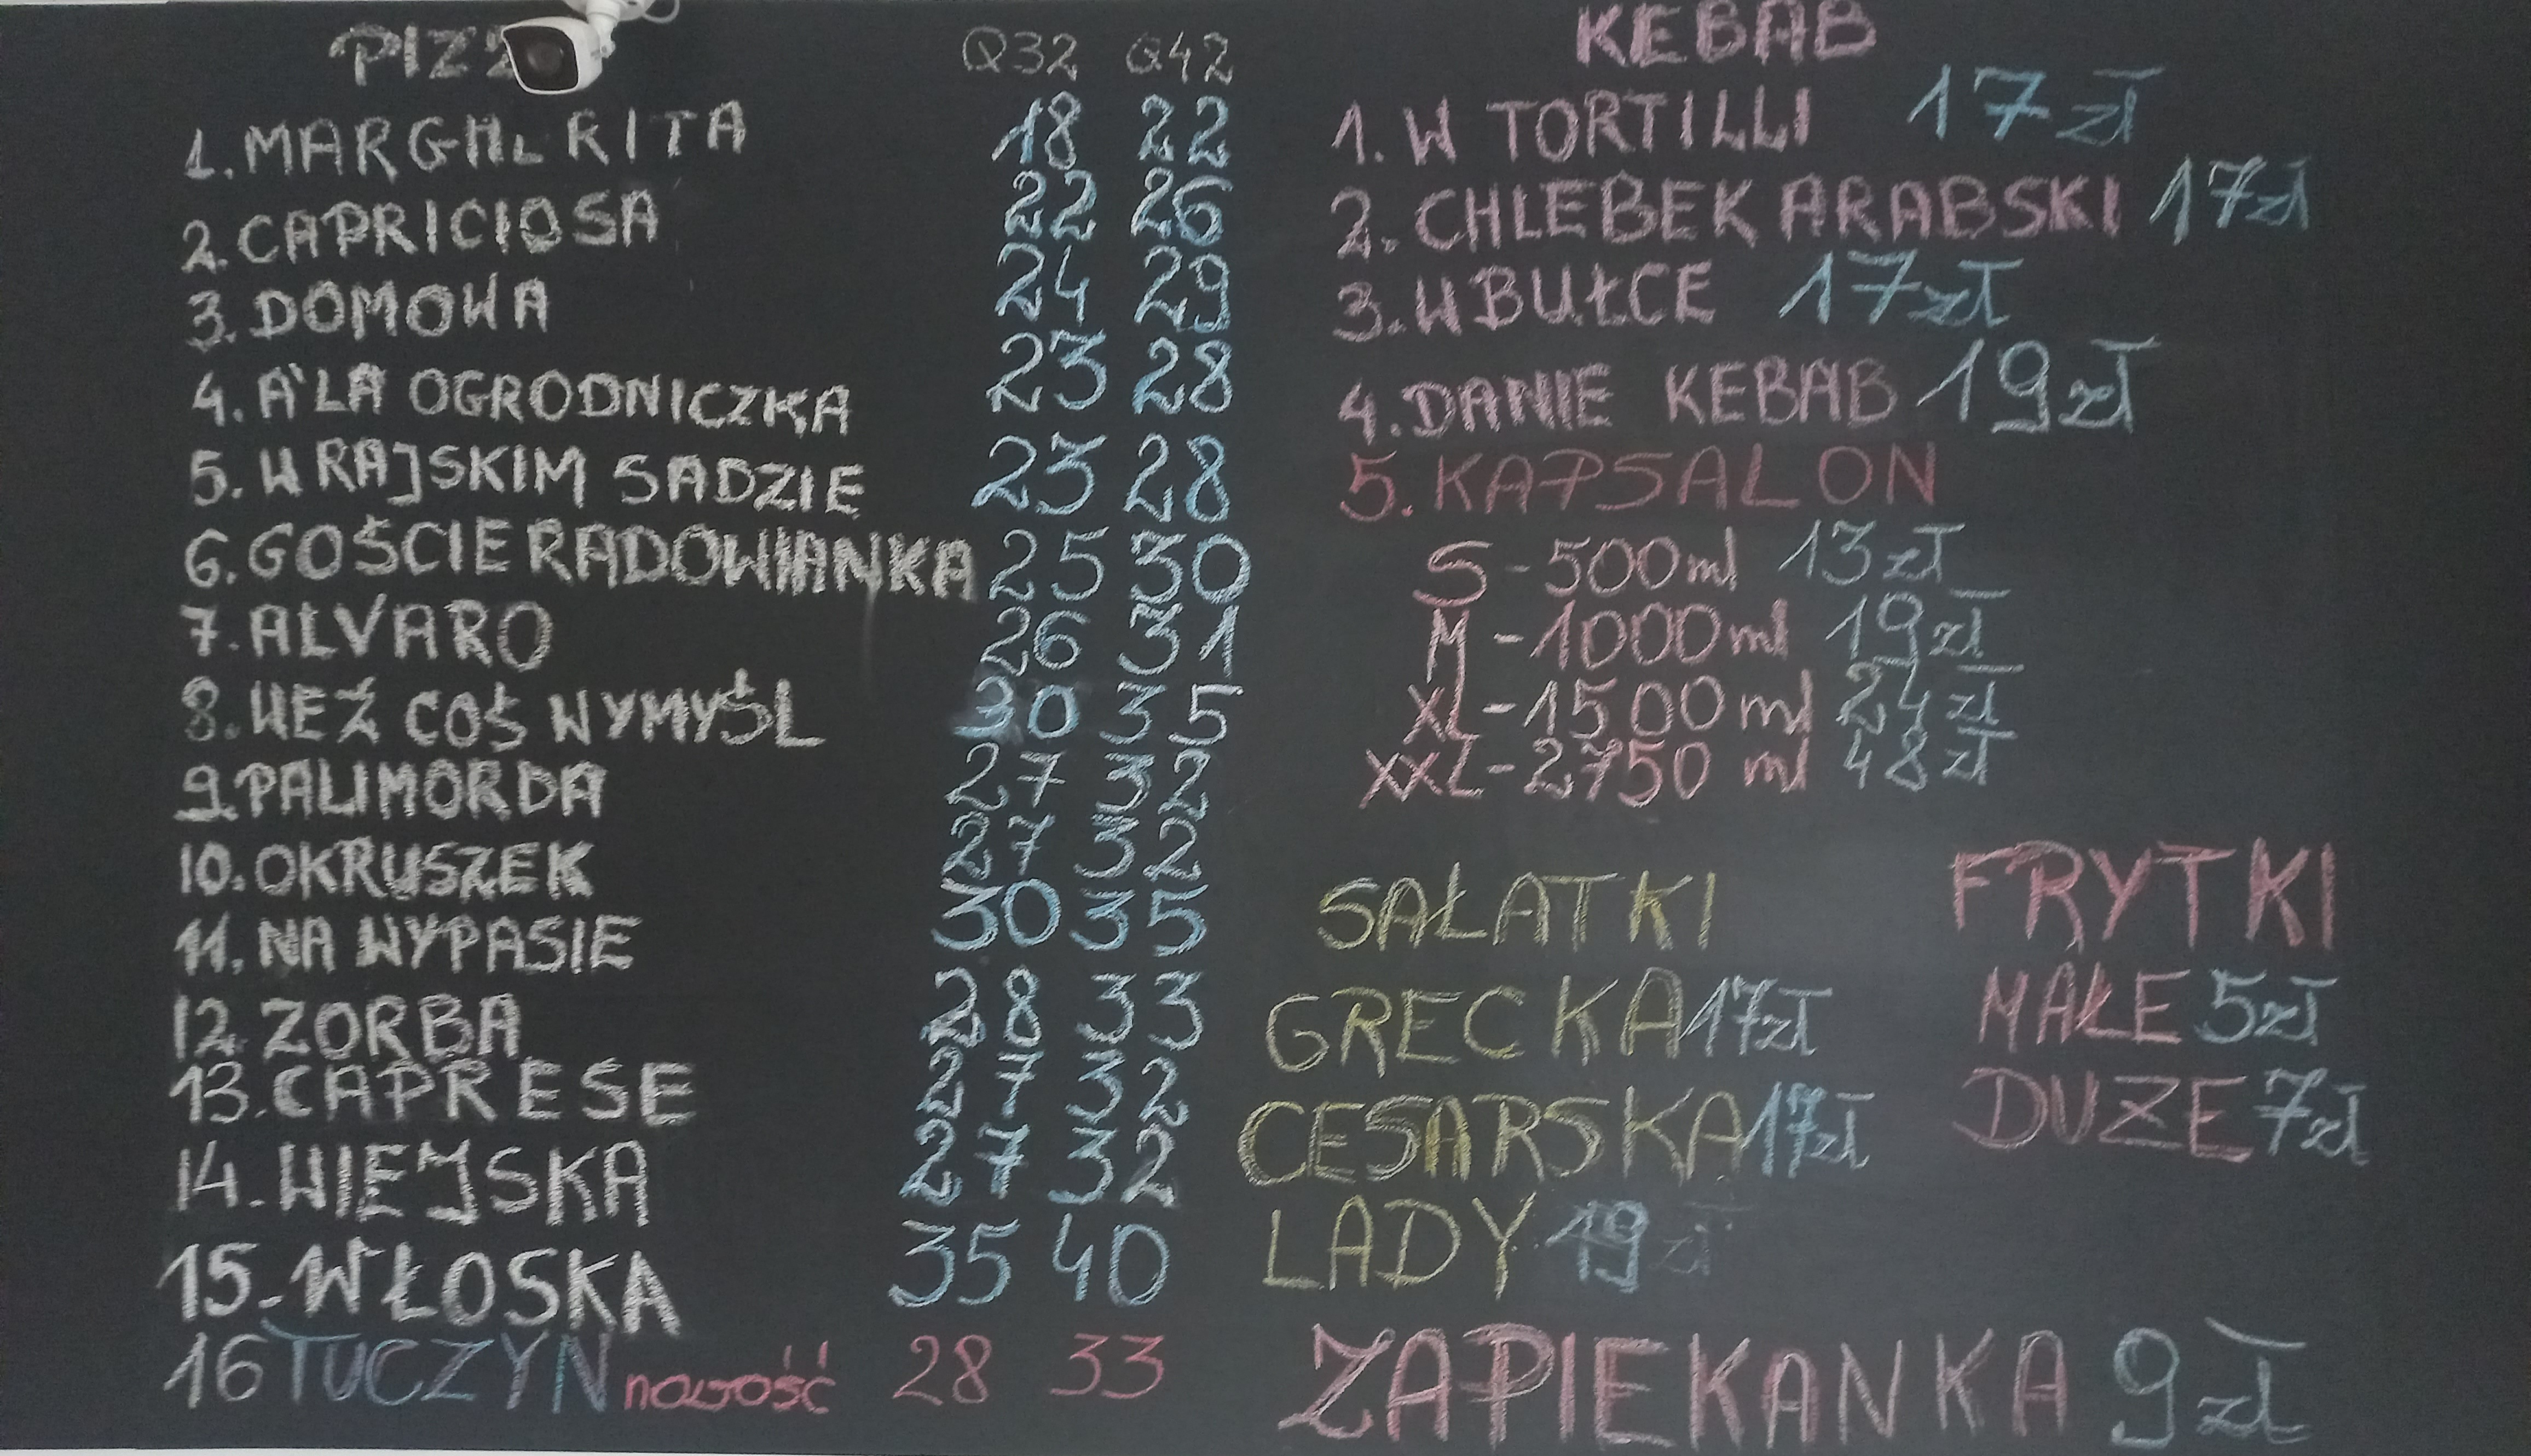 PIZZ
Q32 Q42
1. MARGHERITA 18 22
2. CAPRICIOSA 22 26
3. DOMOWA 24 29
4. A'LA OGRODNICZKA 23 28
5. W RAJSKIM SADZIE 23 28
6. GOŚCIERADOWIANKA 25 30
7. ALVARO 26 31
8. WEŹ COŚ WYMYŚL 30 35
9. PALIMORDA 27 32
10. OKRUSZEK 27 32
11. NA WYPASIE 30 35
12. ZORBA 28 33
13. CAPRESE 27 32
14. WIEJSKA 27 32
15. WŁOSKA 35 40
16 TUCZYN nowość 28 33
KEBAB
1. W TORTILLI 17 zł
2. CHLEBEK ARABSKI 17 zł
3. W BUŁCE 17 zł
4. DANIE KEBAB 19 zł
5. KAPSALON
S - 500 ml 13 zł
M - 1000 ml 19 zł
XL - 1500 ml 24 zł
XXL - 2750 ml 48 zł
SAŁATKI
GRECKA 17 zł
CESARSKA 17 zł
LADY 19 zł
FRYTKI
MAŁE 5 zł
DUŻE 7 zł
ZAPIEKANKA 9 zł